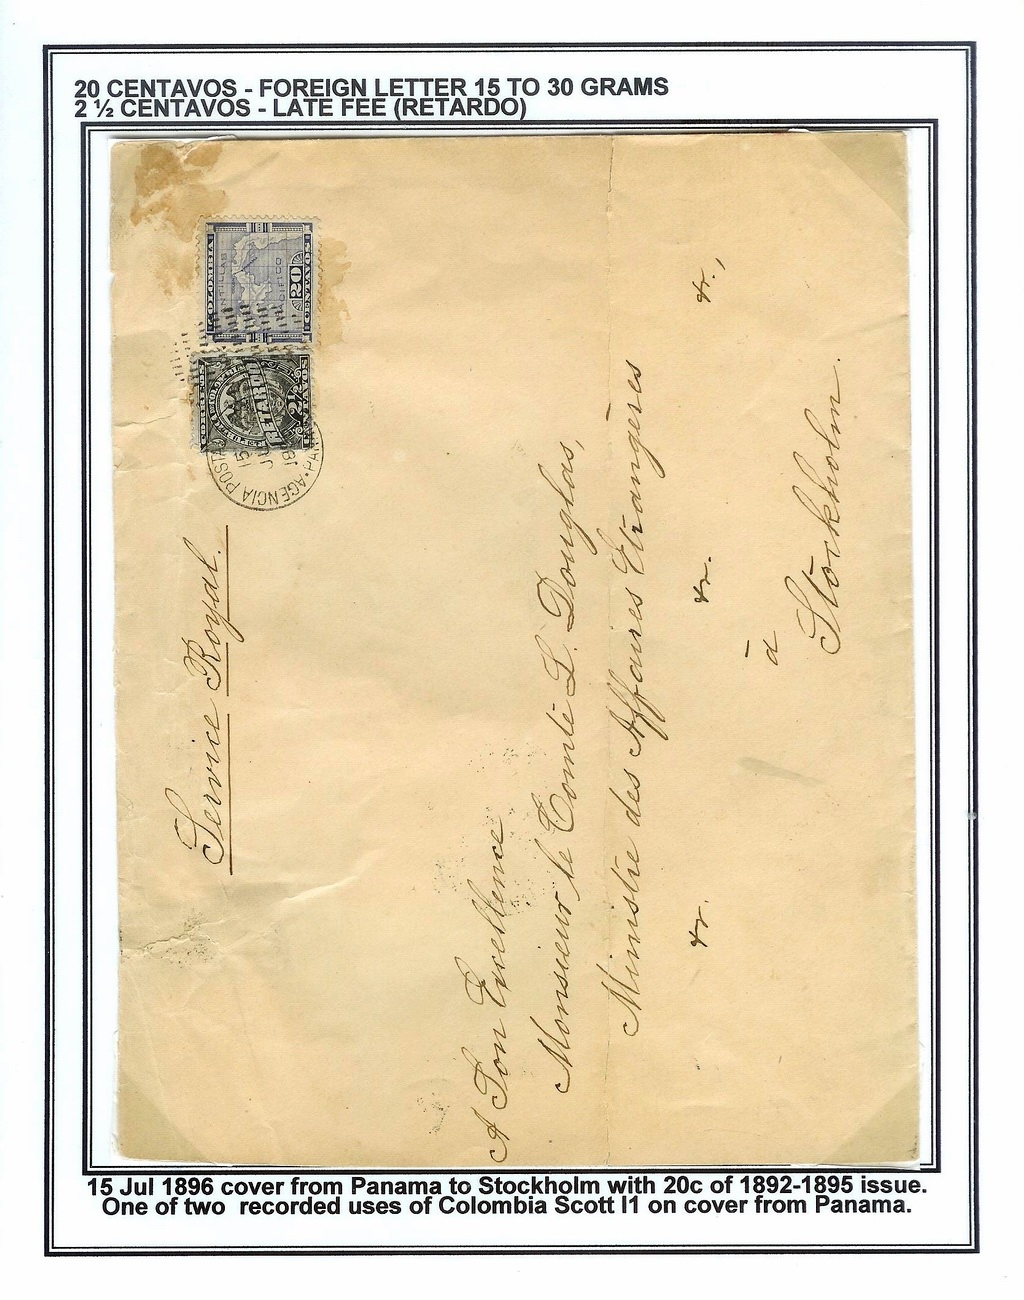 20 CENTAVOS - FOREIGN LETTER 15 TO 30 GRAMS
2 ½ CENTAVOS - LATE FEE (RETARDO)
COLOMBIA
20
CENTAVOS
RETARDO
2 1/2
AGENCIA POSTAL
15
Service Royal.
A Son Excellence
Monsieur le Comte L. Douglas,
Ministre des Affaires Etrangères
&r. &r. &r.,
à
Stockholm.
15 Jul 1896 cover from Panama to Stockholm with 20c of 1892-1895 issue.
One of two recorded uses of Colombia Scott I1 on cover from Panama.